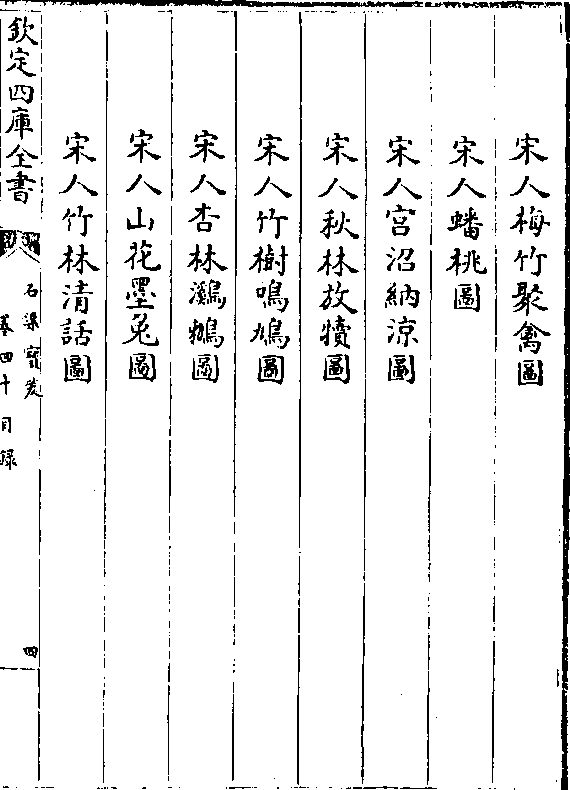 宋人梅竹聚禽圖
宋人蟠桃圖
宋人宮沼納涼圖
宋人秋林放犢圖
宋人竹樹鳴鳩圖
宋人杏林鸂鶒圖
宋人山花墨兔圖
宋人竹林清話圖
欽定四庫全書
石渠寶笈
卷四十目録
四